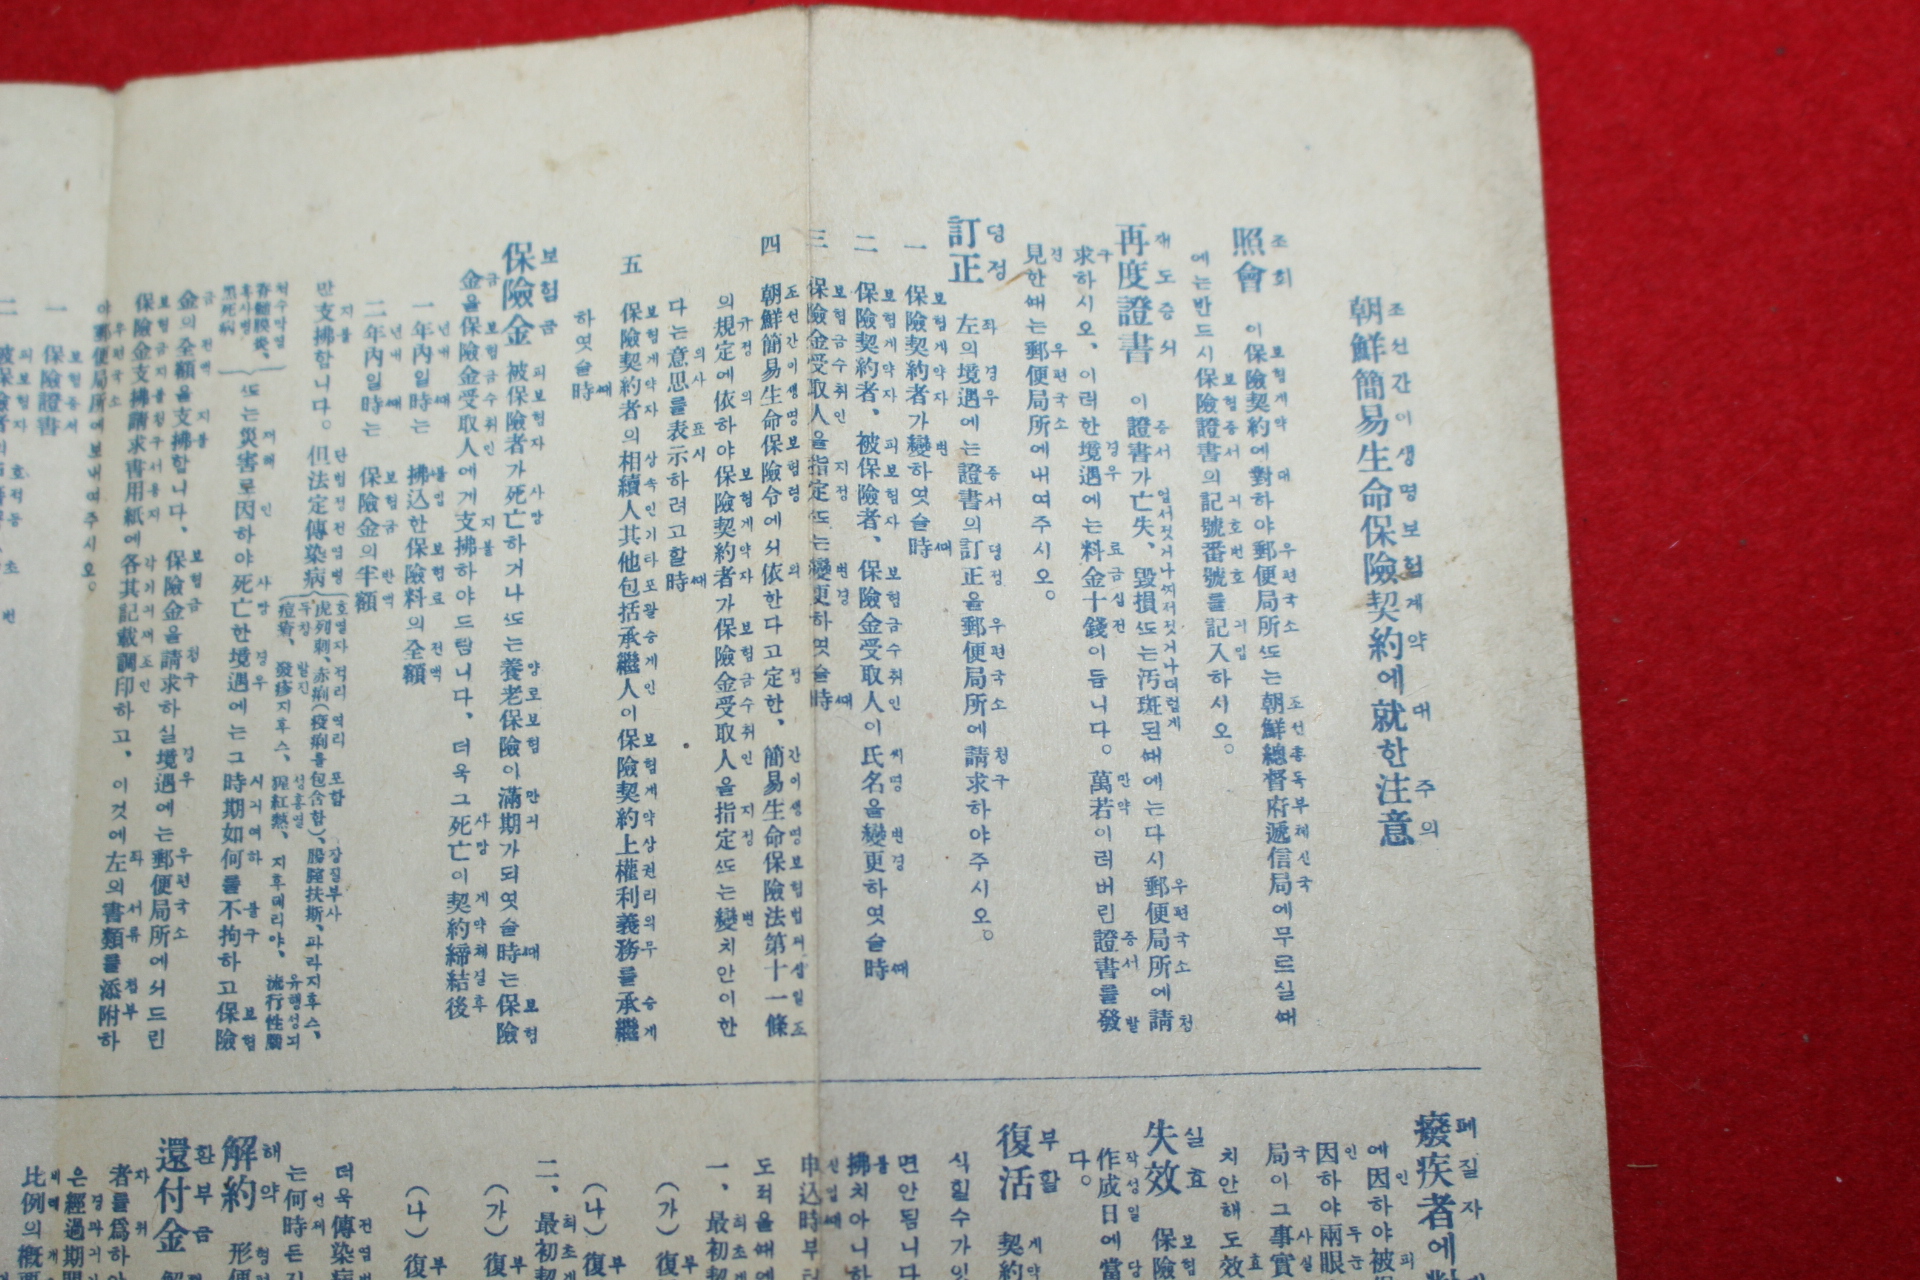 朝鮮簡易生命保險契約에就한注意
照會 이保險契約에對하야郵便局所ᄯᅩ는朝鮮總督府遞信局에무르실ᄯᅢ
에는반드시保險證書의記號番號를記入하시오。
再度證書 이證書가亡失、毁損ᄯᅩ는汚斑된ᄯᅢ에는다시郵便局所에請
求하시오、이러한境遇에는料金十錢이듭니다。萬若이러버린證書를發
見한ᄯᅢ는郵便局所에내여주시오。
訂正 左의境遇에는證書의訂正을郵便局所에請求하야주시오。
一 保險契約者가變하엿슬時
二 保險契約者、被保險者、保險金受取人이氏名을變更하엿슬時
三 保險金受取人을指定ᄯᅩ는變更하엿슬時
四 朝鮮簡易生命保險令에서依한다고定한、簡易生命保險法第十一條
의規定에依하야保險契約者가保險金受取人을指定ᄯᅩ는變치안이한
다는意思를表示하려고할時
五 保險契約者의相續人其他包括承繼人이保險契約上權利義務를承繼
하엿슬時
保險金 被保險者가死亡하거나ᄯᅩ는養老保險이滿期가되엿슬時는保險
金을保險金受取人에게支拂하야드립니다、더욱그死亡이契約締結後
一年內일時는 拂込한保險料의全額
二年內일時는 保險金의半額
만支拂합니다。但法定傳染病
虎列剌、赤痢(疫痢를包含함)、腸窒扶斯、파라지후스、
痘瘡、發疹지후스、猩紅熱、지후데리아、流行性腦
脊髓膜炎、
黑死病
ᄯᅩ는災害로因하야死亡한境遇에는그時期如何를不拘하고保險
金의全額을支拂합니다、保險金을請求하실境遇에는郵便局所에서드린
保險金支拂請求書用紙에各其記載調印하고、이것에左의書類를添附하
야郵便局所에보내여주시오。
一 保險證書
廢疾者에對
에因하야被保
因하야兩眼
局이그事實
치안해도效
失效 保險
作成日에當
다。
復活 契約
식힐수가잇
면안됩니다
拂치아니하
申込時부터
一、最初契
(가) 復
(나) 復
二、最初契
(가) 復
(나) 復
더욱傳染病
는何時든지
解約 形便
還付金 解
者를爲하야
은經過期間
比例의槪要